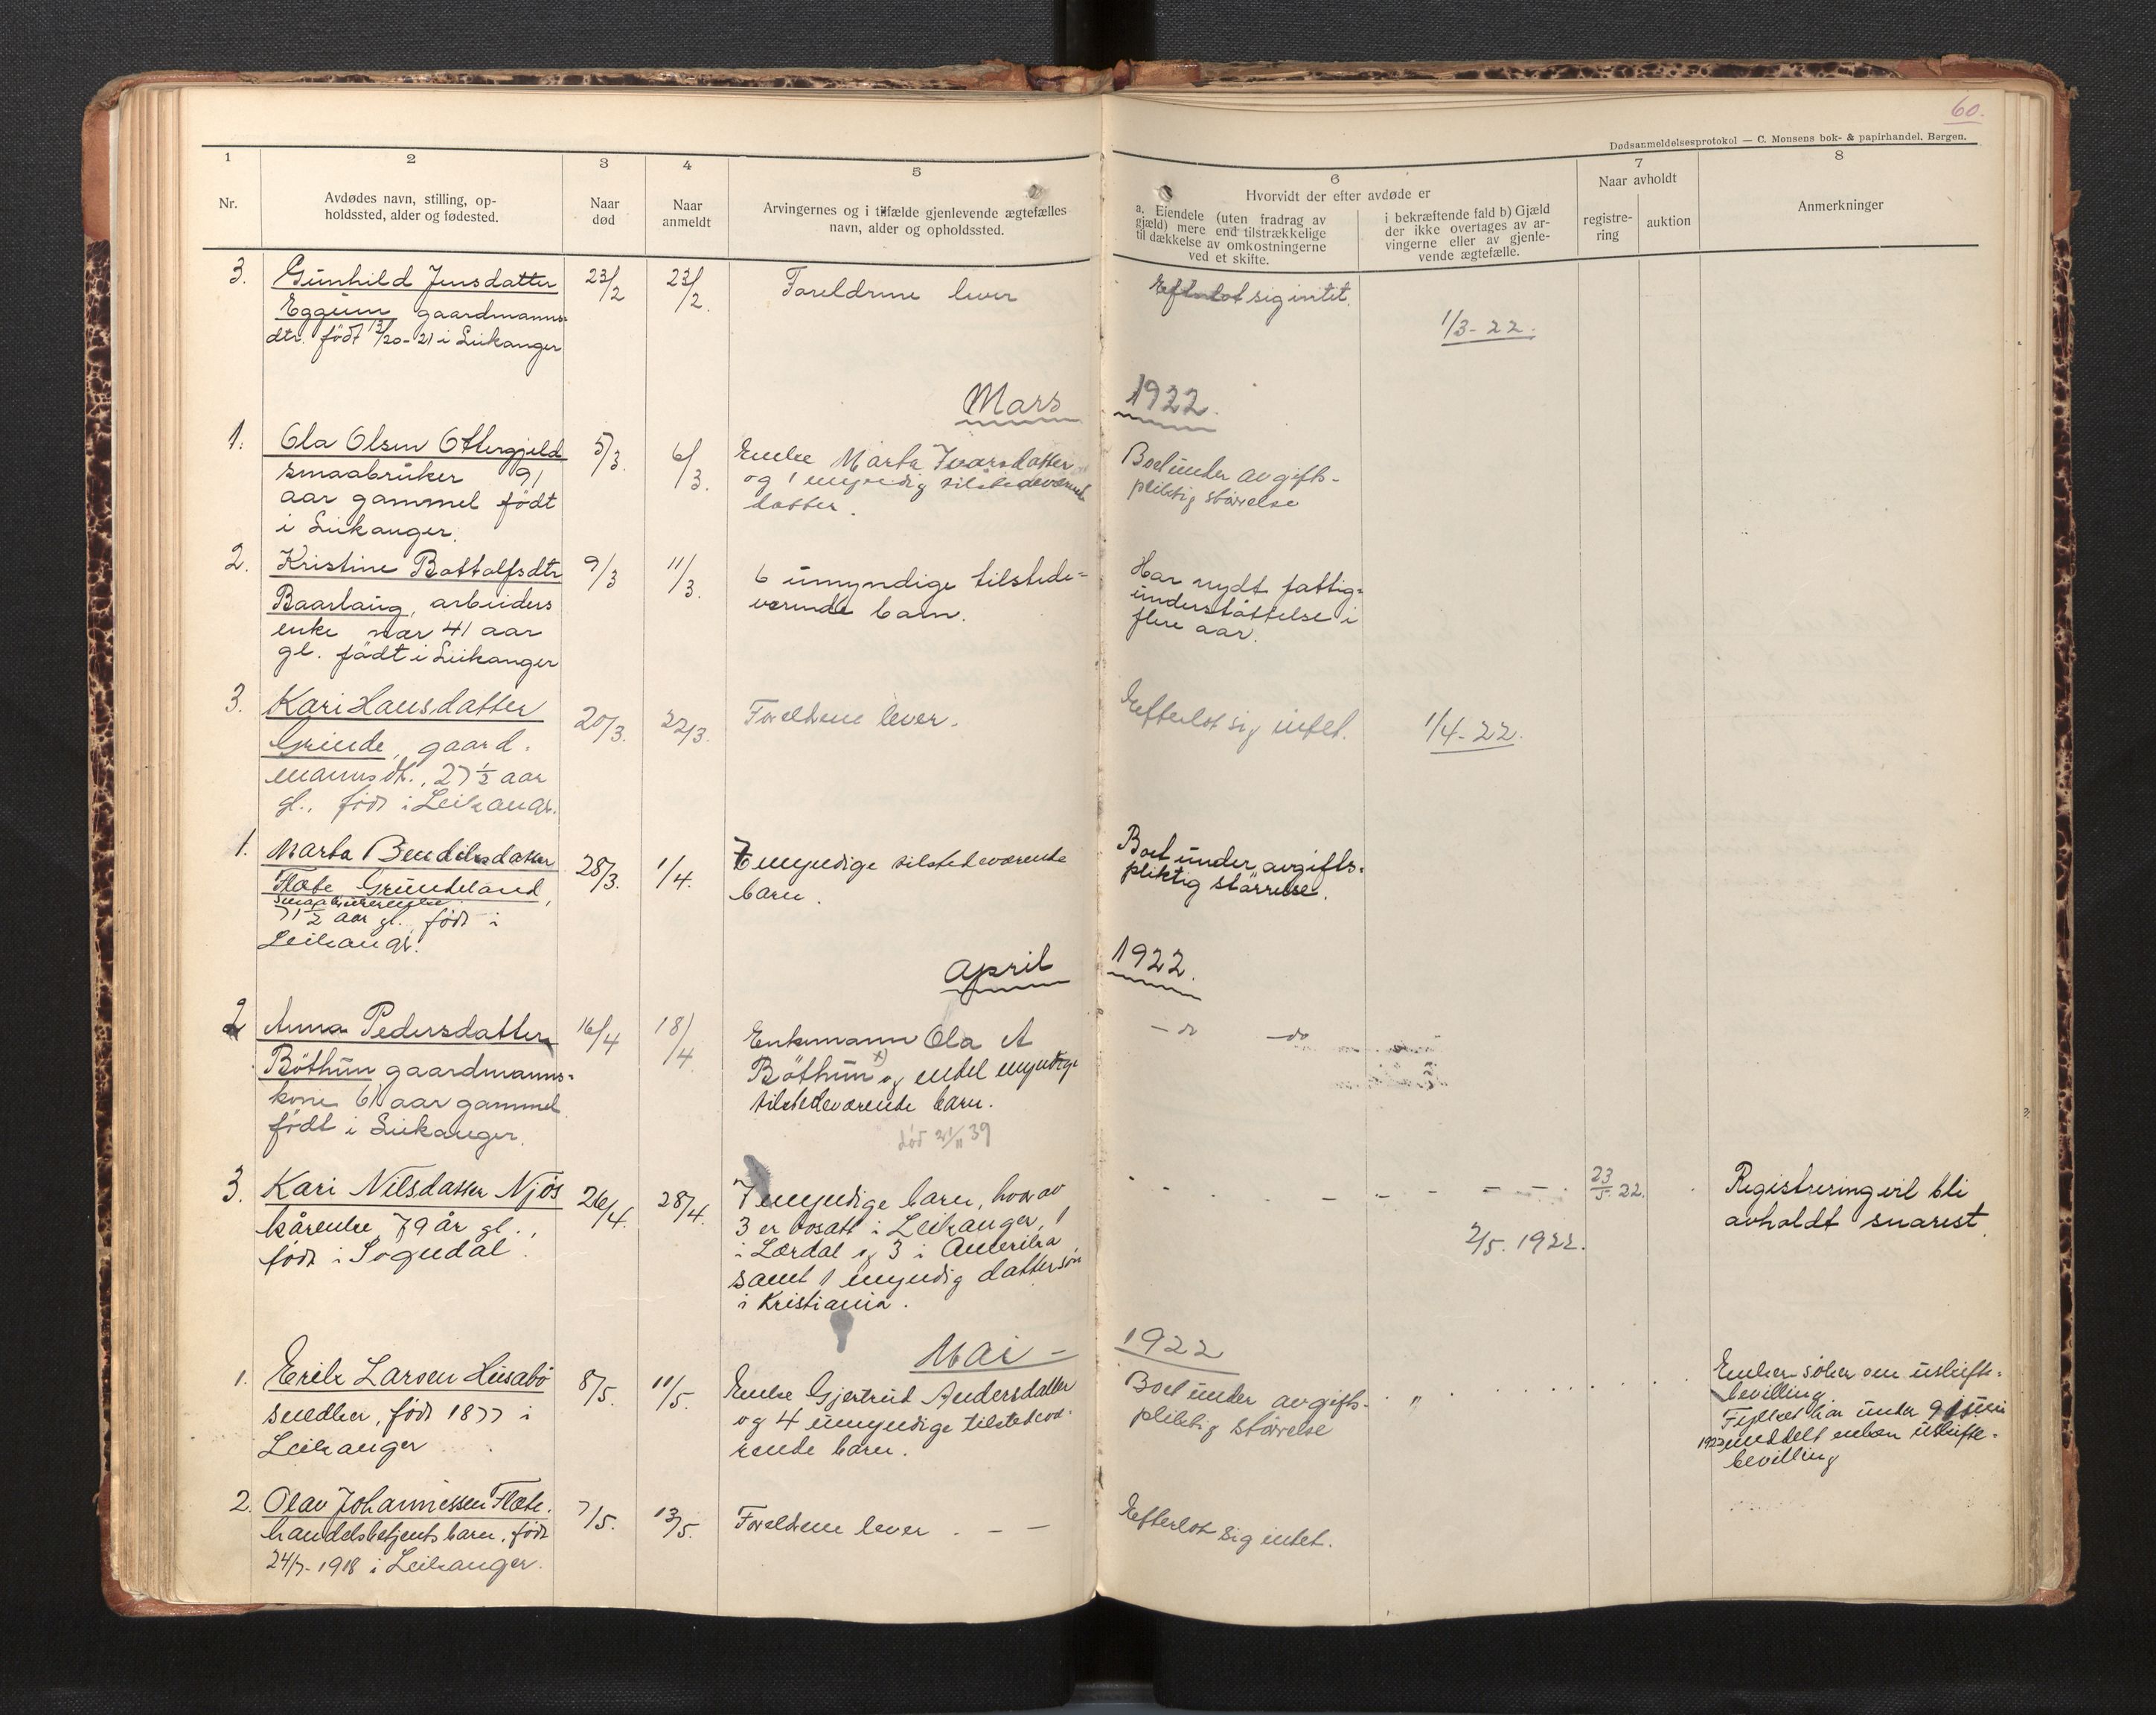 60.
Dødsanmeldelsesprotokol — C. Monsens bok- & papirhandel, Bergen.
1
2
3
4
5
6
7
8
Nr.
Avdødes navn, stilling, op-
holdssted, alder og fødested.
Naar
død
Naar
anmeldt
Arvingernes og i tilfælde gjenlevende ægtefælles
navn, alder og opholdssted.
Hvorvidt der efter avdøde er
a. Eiendele (uten fradrag av
gjæld) mere end tilstrækkelige
til dækkelse av omkostningerne
ved et skifte.
i bekræftende fald b) Gjæld
der ikke overtages av ar-
vingerne eller av gjenle-
vende ægtefælle.
Naar avholdt
registre-
ring
auktion
Anmerkninger
3.
Gunhild Jensdatter
Eggum gaardmanns-
dtr. födt /20-21 i Leikanger
23/2
23/2.
Foreldrene lever
Efterlot sig intet.
1/3-22.
Mars 1922.
1.
Ola Olsen Ottergjeld
smaabruker 91
aar gammel födt
i Leikanger.
5/3.
6/3.
Enke Marta Ivarsdatter
og 1 myndig tilstedeværende
datter.
Boet under avgifts-
pliktig størrelse
2.
Kristine Bottolfsdtr
Baarlaug, arbeiders
enke nær 41 aar
gl. födt i Leikanger
9/3
11/3.
6 umyndige tilstede-
værende barn.
Har nydt fattig-
understöttelse i
flere aar.
3.
Kari Hansdatter
Grinde, gaard-
mannsdt., 27 1/2 aar
gl., født i Leikangr.
20/3.
22/3.
Foreldrene lever.
Efterlot sig intet.
1/4-22.
1.
Marta Bendiksdatter
Flæte Grundeland,
smaabrukerenke
71 1/2 aar gl. født i
Leikangr.
28/3.
1/4.
7 myndige tilstedeværende
barn.
Boet under avgifts-
pliktig størrelse.
April 1922.
2
Anna Pedersdatter
Böthun gaardmanns-
kone 61 aar gammel
födt i Leikanger.
16/4
18/4
Enkemann Ola A
Böthun x) og endel myndige
tilstedeværende barn.
død 21/11 39
— do —do
3.
Kari Nilsdatter Njøs
kårenke 79 år gl.,
født i Sogndal.
26/4.
28/4.
7 myndige barn, hvorav
3 er bosatt i Leikanger, 1
i Lærdal og 3 i Amerika
samt 1 myndig dattersøn
i Kristiania.
2/5. 1922.
23/5. 22.
Registrering vil bli
avholdt snarest.
Mai - 1922
1.
Erik Larsen Husabø
snedker, født 1877 i
Leikanger
8/5.
11/5.
Enke Gjertrud Andersdatter
og 4 umyndige tilstedevæ-
rende barn.
Boet under avgifts-
pliktig størrelse
"
Enken søker om uskifte-
bevilling
Fylket har under 9 juni
1922 meddelt enken uskifte-
bevilling
2.
Olav Johannessen Flæte.
handelsbetjents barn, født
24/7-1918 i Leikanger.
7/5.
13/5.
Foreldrene lever. - —
Efterlot sig intet.